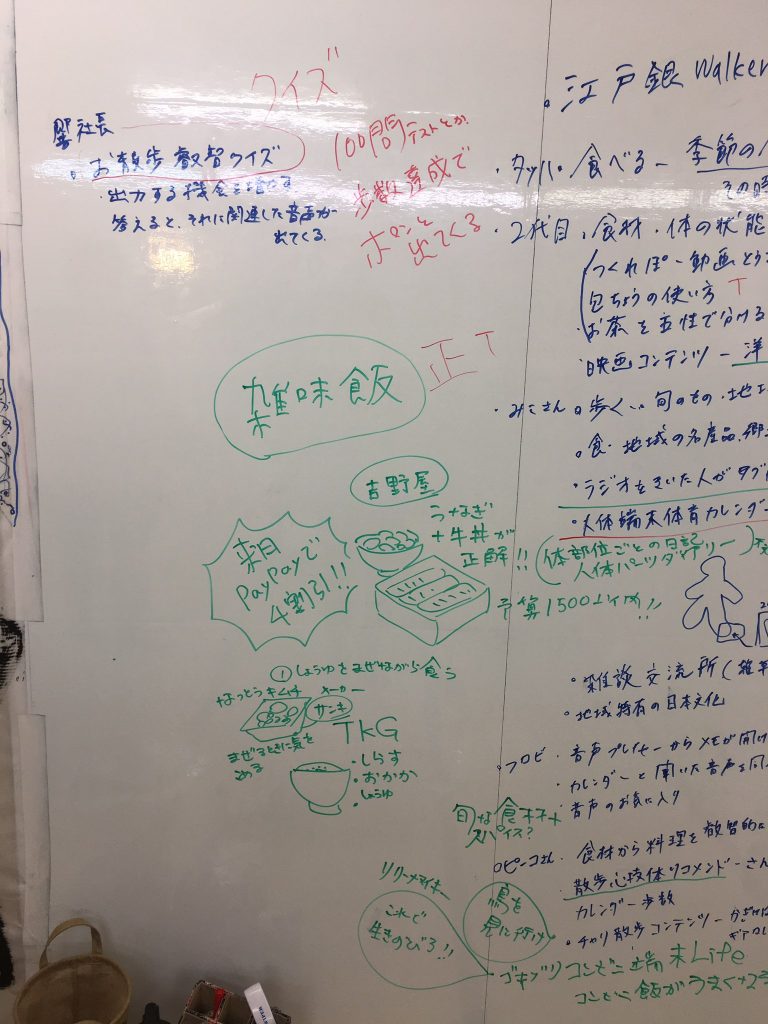 クイズ
社長
お散歩 叡智クイズ
・出力する機会を増やす
答えると、それに関連した音声が
出てくる
100問テストとか
歩数育成で
ポンと
出てくる
雑味飯
正T
吉野屋
うなぎ
+牛丼が
正解!!
来月
PayPayで
4割引!!
予算1500以内!!
①しょうゆをまぜながら食う
なっとうキムチ
メーカー
サンキ
まぜるときに気を
込める
TKG
・しらす
・おかか
・しょうゆ
旬な食材+
スパイス?
これで
生きのびろ!!
鳥を
見に行け
。江戸銀Walker
・タッパ。食べるー 季節の
その時
・2代目、食材・体の状態
つくれぽー動画とう
包ちょうの使い方 T
・お茶を五性で分ける
映画コンテンツー洋
・みこさん。歩く、旬のもの・地
。食・地域の名産品、郷
・ラジオをきいた人がタブ
・人体端末体育カレンダー
(体部位ごとの日記
人体パーツダイアリー)
・雑談交流所(雑
・地域特有の日本文化
・フロビ・音声プレイヤーからメモが開け
・カレンダーと聞いた音声を同
・音声のお気に入り
ロピーコさん・食材から料理を叡智的に
・散歩心技体リコメンドーさん
カレンダー歩数
・チャリ散歩コンテンツー
ゴキブリコンビニ端末Life
コンビニ飯がうまく